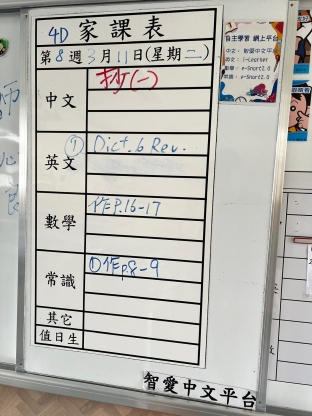 4D 家課表
第8週3月11日(星期二)
中文 抄(一)
英文 ① Dict. 6 Rev.
數學 作P.16-17
常識 ①作p.8-9
其它
值日生
自主學習 網上平台
中文: 智愛中文平台
英文: i-Learner
數學: e-Smart2.0
常識: e-Smart2.0
智愛中文平台